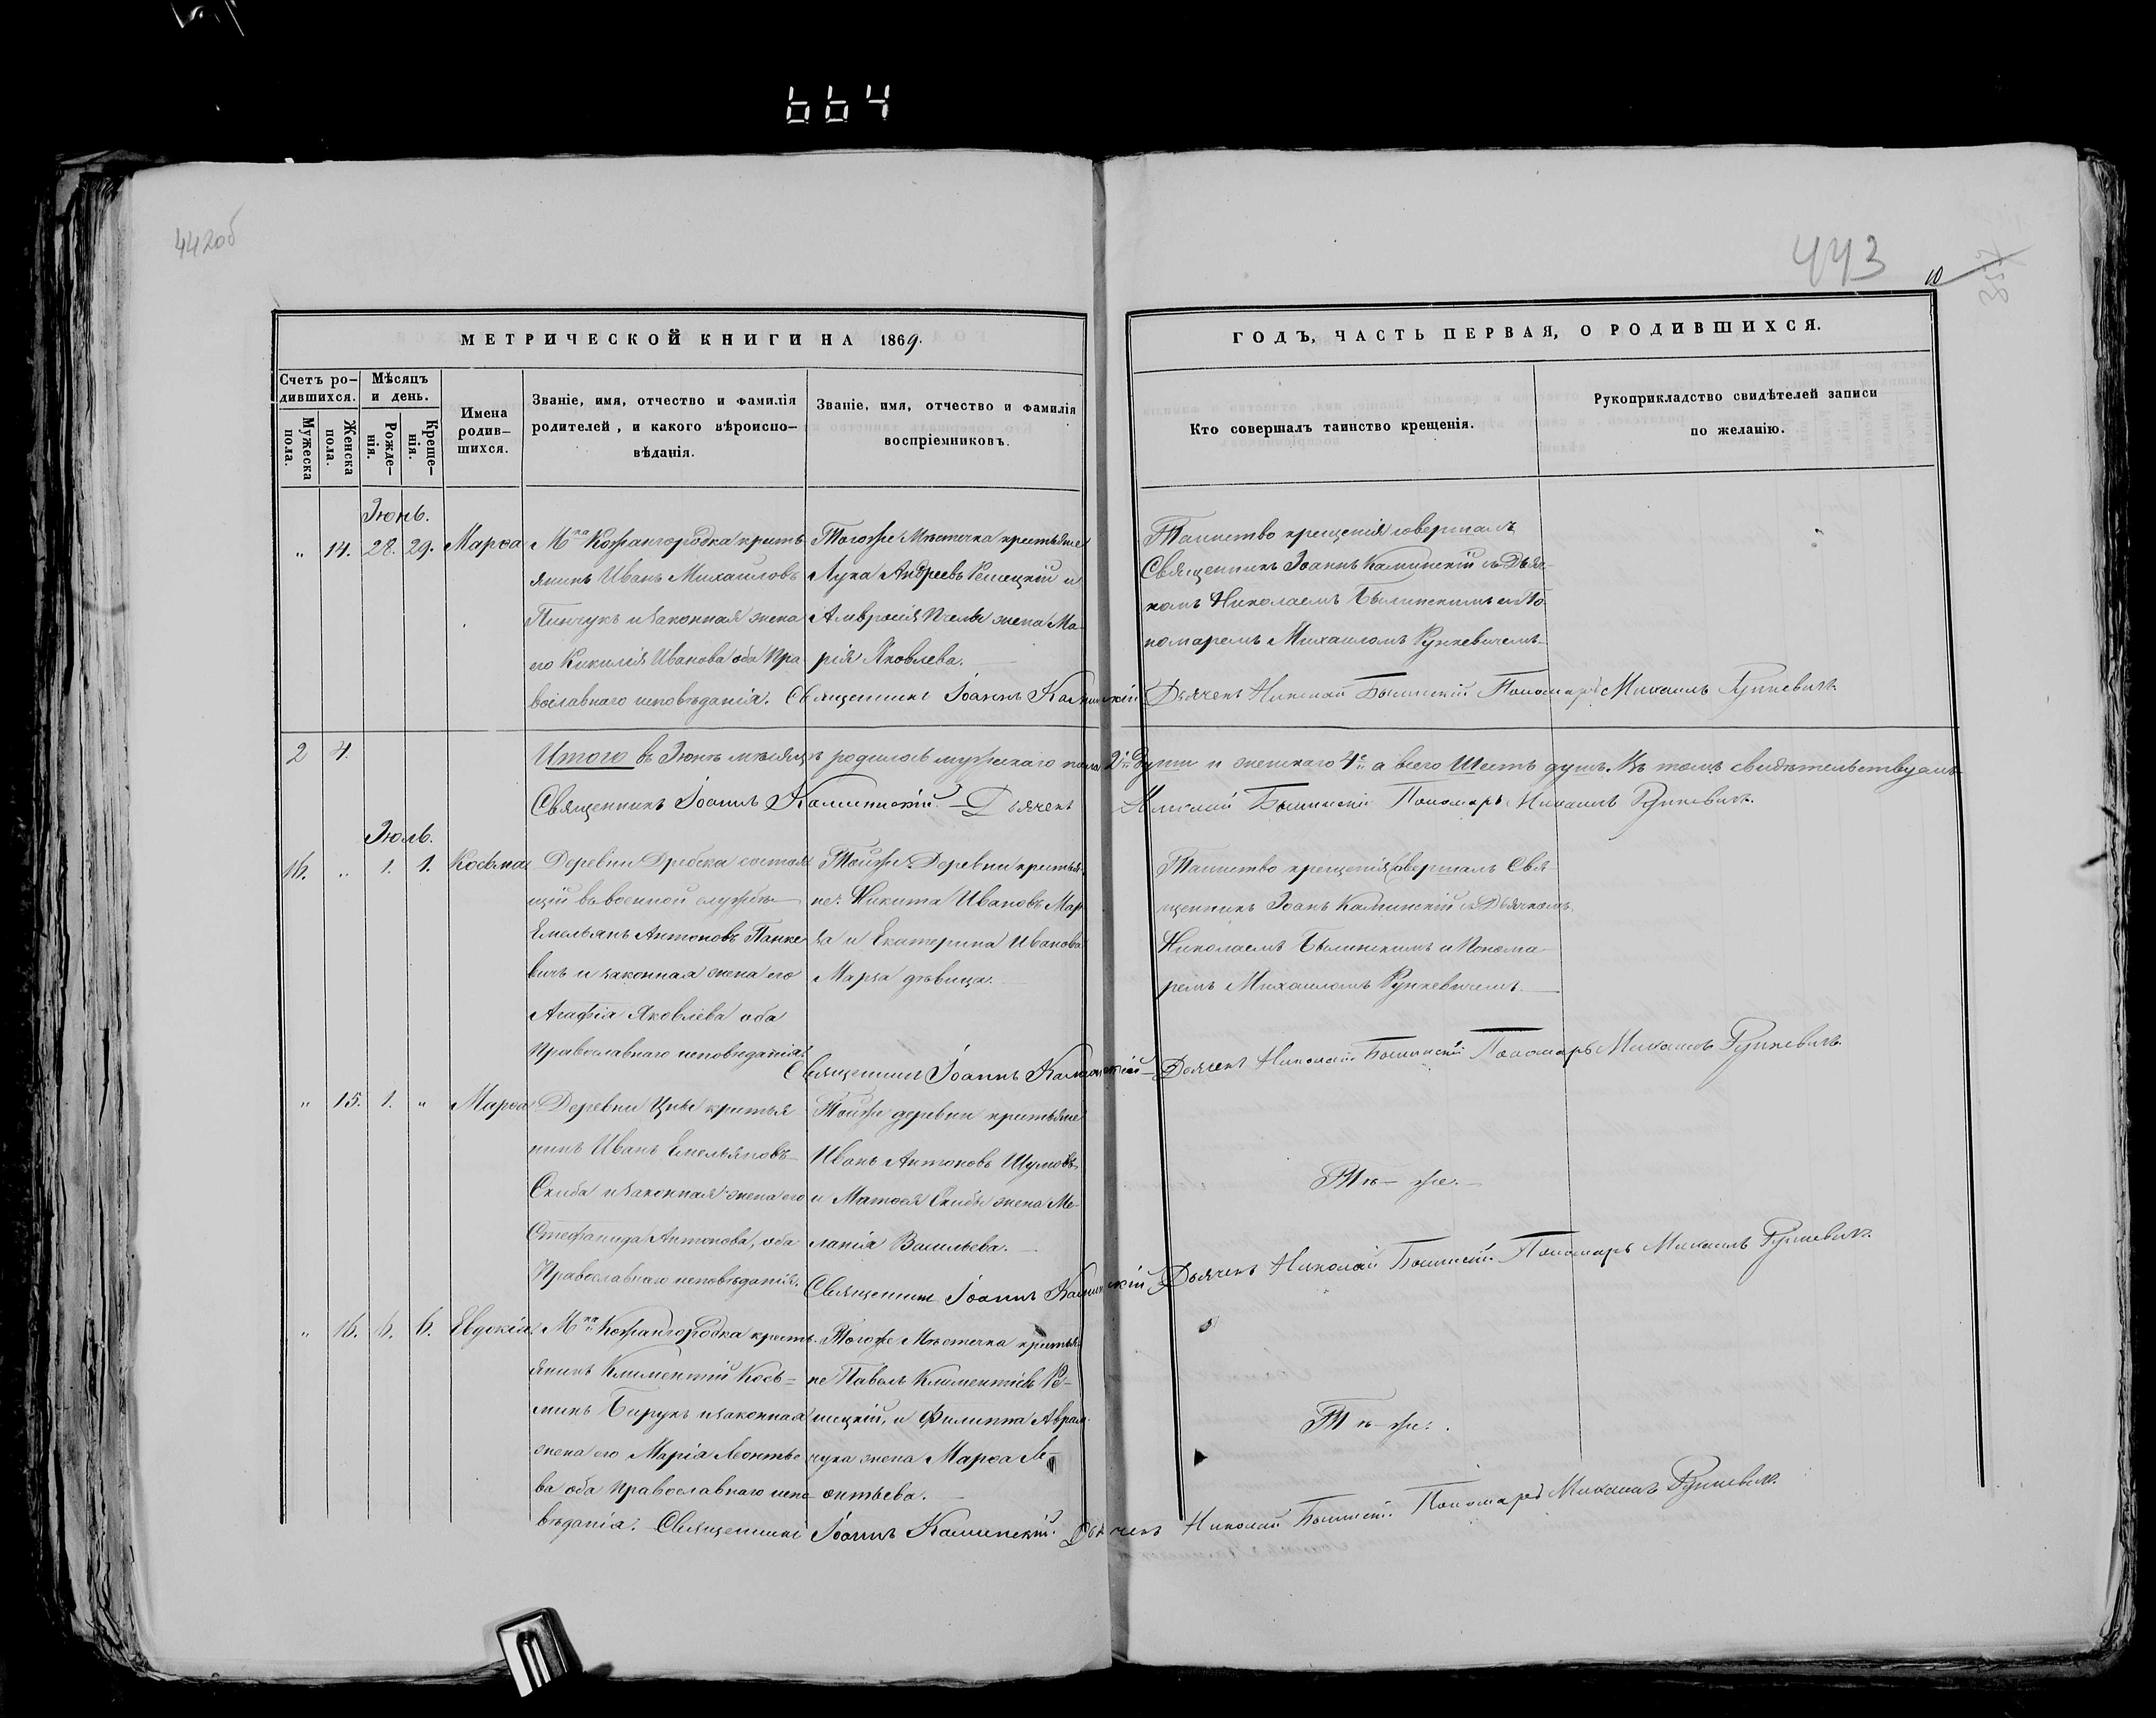 664
442об
443
10
МЕТРИЧЕСКОЙ КНИГИ НА 1869.
Счетъ ро-
дившихся.
Мужеска
пола.
Женска
пола.
Мѣсяцъ
и день.
Рожде-
нія.
Креще-
нія.
Имена
родив-
шихся.
Званіе, имя, отчество и фамилія
родителей, и какого вѣроиспо-
вѣданія.
Званіе, имя, отчество и фамилія
воспріемниковъ.
ГОДЪ, ЧАСТЬ ПЕРВАЯ, О РОДИВШИХСЯ.
Кто совершалъ таинство крещенія.
Рукоприкладство свидѣтелей записи
по желанію.
Іюнь.
„ 14. 28. 29. Марѳа
М-ка Кожангородка кресть
янинъ Иванъ Михаиловъ
Пинчукъ и законная жена
его Кикилія Иванова оба Пра
вославнаго исповѣданія.
Тогоже Мѣстечка крестьяне
Лука Андреевъ Решецкій и
Амвросія Пчелы жена Ма-
рія Яковлева.
Таинство крещенія совершалъ
Священникъ Іоаннъ Каминскій съ Дьяч-
комъ Николаемъ Былинскимъ и По-
номаремъ Михаиломъ Рункевичемъ
Священникъ Іоаннъ Каминскій Дьячекъ Николай Былинскій Пономарь Михаилъ Рункевичъ
2 4.
Итого въ Іюнѣ мѣсяцѣ родилось мужескаго пола 2 души и женскаго 4 а всего Шесть душъ. Въ томъ свидѣтельствуемъ
Священникъ Іоаннъ Каминскій Дьячекъ Николай Былинскій Пономарь Михаилъ Рункевичъ.
Іюль.
16. „ 1. 1. Косьма
Деревни Дребска состоя
щій въ военной службѣ
Емельянъ Антоновъ Панке
вичъ и законная жена его
Агафія Яковлева оба
Православнаго исповѣданія.
Тойже Деревни крестья
не: Никита Ивановъ Мар
за и Екатерина Иванова
Марза дѣвица.
Таинство крещенія совершалъ Свя-
щенникъ Іоанъ Каминскій съ Дьячкомъ
Николаемъ Былинскимъ и Понома
ремъ Михаиломъ Рункевичемъ
Священникъ Іоаннъ Каминскій Дьячекъ Николай Былинскій Пономарь Михаилъ Рункевичъ
„ 15. 1. „ Марѳа
Деревни Цны крестья
нинъ Иванъ Емельяновъ
Скиба и законная жена его
Стефанида Антонова, оба
Православнаго исповѣданія.
Тойже деревни крестьяне
Иванъ Антоновъ
и Матѳея Скибы жена Ме-
ланія Васильева.
Тѣ-же.
Священникъ Іоаннъ Каминскій Дьячекъ Николай Былинскій Пономарь Михаилъ Рункевичъ
„ 16. 6. 6. Евдокія
М-ка Кожангородка кресть
янинъ Климентій Кось-
минъ Бирукъ и законная
жена его Марія Леонтье
ва оба Православнаго испо
вѣданія.
Тогоже Мѣстечка крестья
не Павелъ Климентіевъ Ре-
шецкій, и Филиппа Аврам
чука жена Марѳа Ле
онтьева.
Тѣ-же.
Священникъ Іоаннъ Каминскій. Дьячекъ Николай Былинскій Пономарь Михаилъ Рункевичъ.